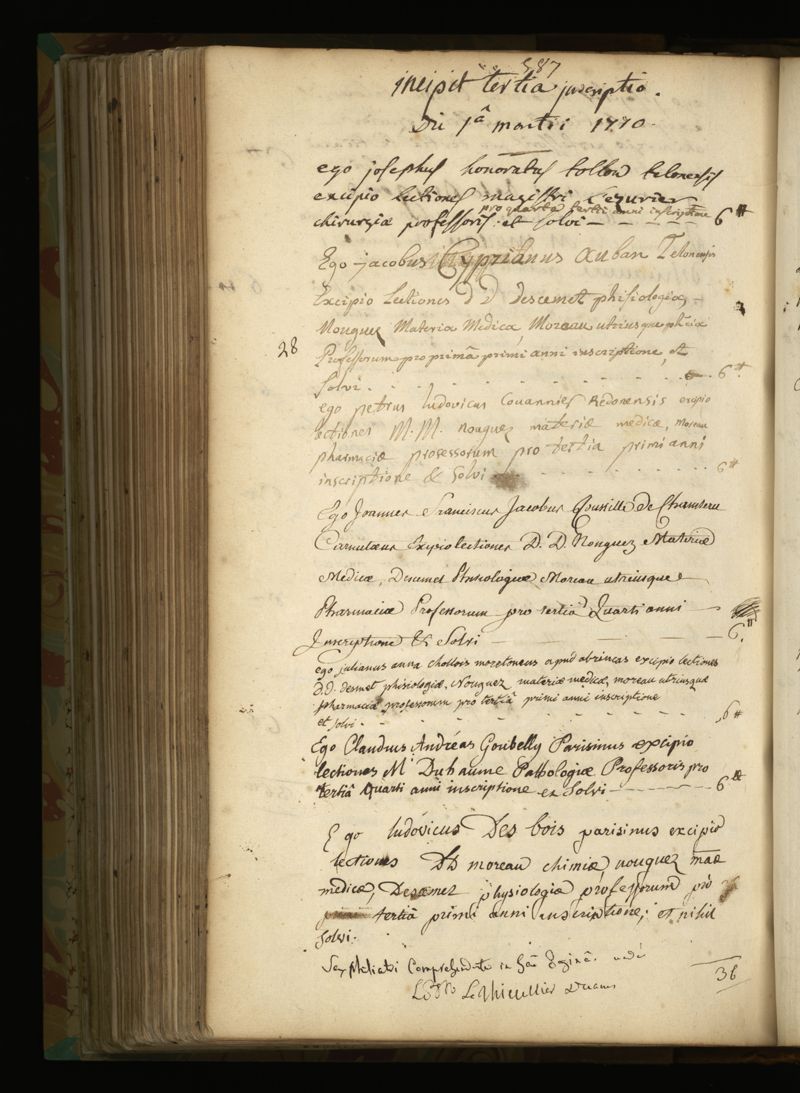 587
incipit tertia inscriptio.
Die 1ª martii 1770.
ego josephus honoratus tollon telonensis
excipio lectiones magistri Lezurier
pro quarta tertii anni inscriptione
chirurgiæ professoris et solvi - - - - - 6 ₶
Ego jacobus Cyprianus Auban Telonensis
Excipio Lectiones D D Descemet phisiologiæ
Nouguez Materiæ Medicæ, Moreau utriusque phciæ
28 Professorum pro primâ primi anni inscriptione, et
Solvi . - . - . - . - . 6 ₶.
ego petrus ludovicus Couannier Redonensis excipio
lectiones M. M. nouguez materiæ medicæ, Moreau
pharmaciæ professorum pro tertia primi anni
inscriptione & solvi . . . . . . 6 ₶
Ego Joannes Franciscus Jacobus
Carnutæus Excipio lectiones D. D. Nouguez Materiæ
Medicæ, Descemet Phisiologiæ Moreau utriusque
Pharmaciæ Professorum pro tertiâ Quarti anni
Inscriptione Et Solvi - - - 6 ₶.
ego julianus anna chollois moretoneus apud abrincas excipio lectiones
d.d. desmet phisiologiæ, Nouguez materiæ medicæ, moreau utriusquæ
pharmaciæ professorum pro tertiâ primi anni inscriptione
et solvi . - . - . - . - 6 ₶
Ego Claudius Andréas Goubelly Parisinus excipio
lectiones M Duhaume Pathologiæ Professoris pro
tertiâ Quarti anni inscriptione et Solvi - - - - 6 ₶
Ego ludovicus Des bois parisinus excipio
lectiones DD moreau chimiæ, nouguez mae
medicæ, Descemet physiologiæ professorum pro
tertiâ primi anni inscriptione; et nihil
solvi.
Sex Philiatri Comprehendunt in hâc
36
Le Thieullier Decanus